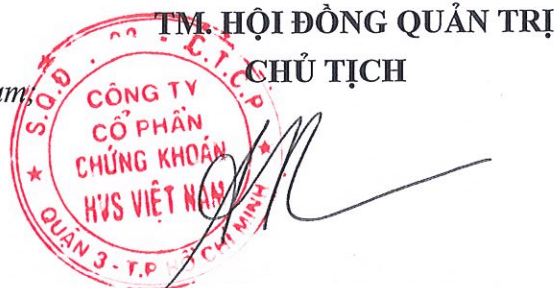 TM. HỘI ĐỒNG QUẢN TRỊ
CHỦ TỊCH
am;
S.Q.Đ C.T.C.P
CÔNG TY
CỔ PHẦN
CHỨNG KHOÁN
HVS VIỆT NAM
QUẬN 3 - T.P HỒ CHÍ MINH